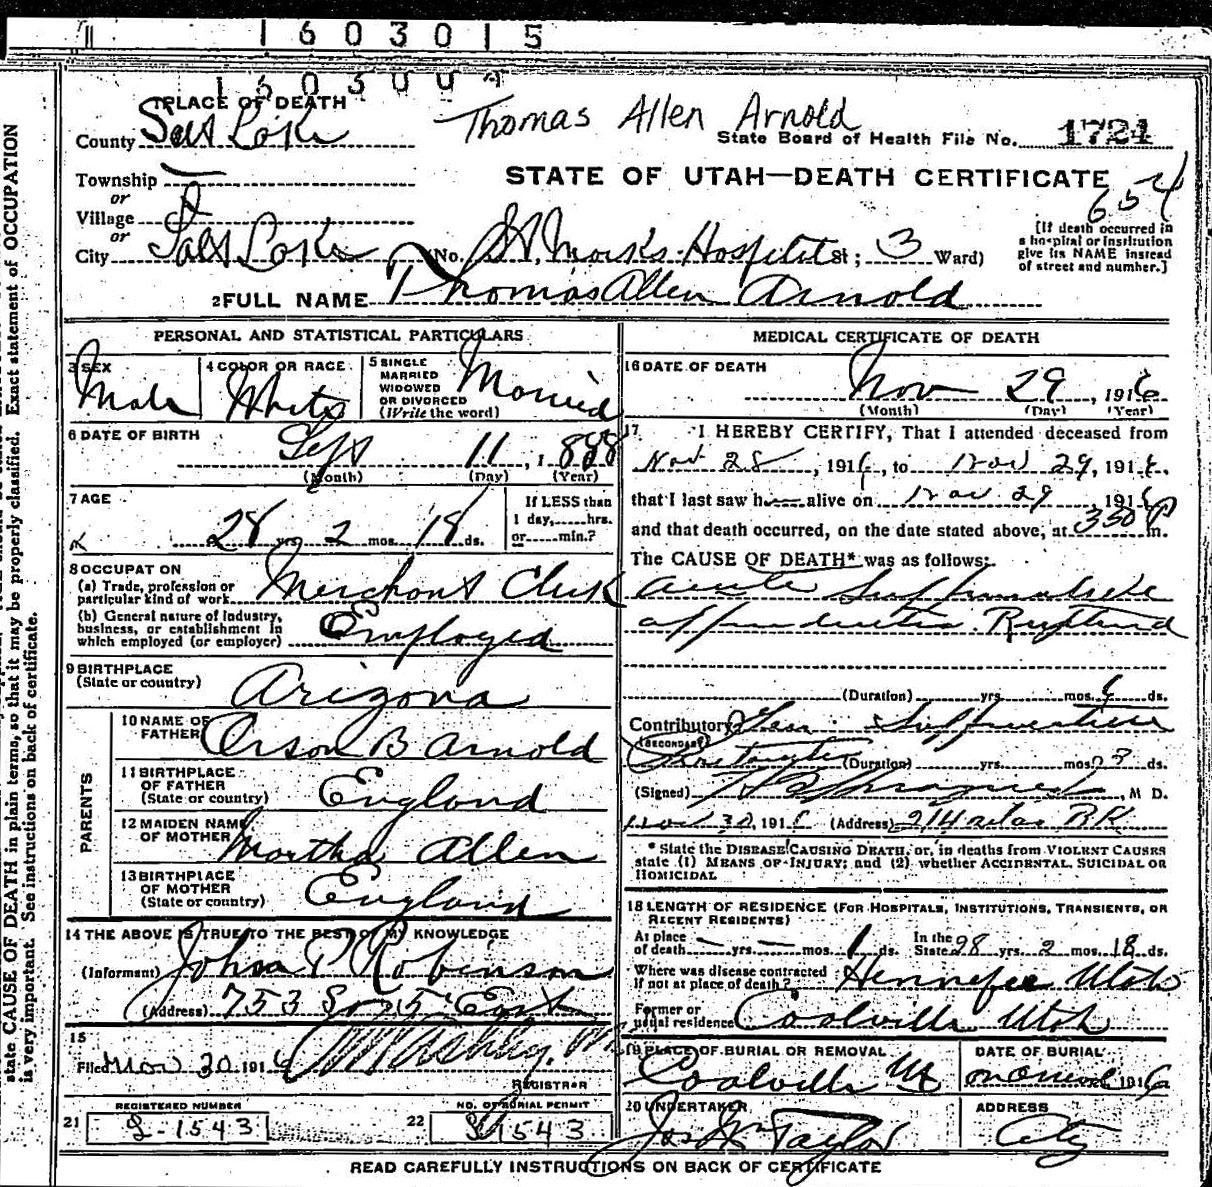 1603015
160300
1 PLACE OF DEATH
Thomas Allen Arnold
County Salt Lake
State Board of Health File No. 1721
Township —
STATE OF UTAH—DEATH CERTIFICATE
654
or
Village
or
City Salt Lake No. St. Marks Hospital St; 3 Ward)
[If death occurred in
a hospital or institution
give its NAME instead
of street and number.]
2 FULL NAME Thomas Allen Arnold
PERSONAL AND STATISTICAL PARTICULARS
3 SEX
Male
4 COLOR OR RACE
White
5 SINGLE
MARRIED
WIDOWED
OR DIVORCED
(Write the word)
Married
6 DATE OF BIRTH
Sept 11, 1888
(Month) (Day) (Year)
7 AGE
28 yrs 2 mos. 18 ds.
If LESS than
1 day, hrs.
or min.?
8 OCCUPATION
(a) Trade, profession or
particular kind of work Merchant Clerk
(b) General nature of industry,
business, or establishment in
which employed (or employer) Employed
9 BIRTHPLACE
(State or country) Arizona
PARENTS
10 NAME OF
FATHER Orson B Arnold
11 BIRTHPLACE
OF FATHER
(State or country) England
12 MAIDEN NAME
OF MOTHER Martha Allen
13 BIRTHPLACE
OF MOTHER
(State or country) England
14 THE ABOVE IS TRUE TO THE BEST OF MY KNOWLEDGE
(Informant) John P Robinson
(Address) 753 So 5" East
15
Filed Nov 30 1916 Ashley, M.
REGISTRAR
REGISTERED NUMBER
21 S-1543
NO. OF BURIAL PERMIT
22 S 1543
MEDICAL CERTIFICATE OF DEATH
16 DATE OF DEATH
Nov 29, 1916
(Month) (Day) (Year)
17 I HEREBY CERTIFY, That I attended deceased from
Nov 28, 1916, to Nov 29, 1916.
that I last saw h alive on Nov 29 1916
and that death occurred, on the date stated above, at 350 P m.
The CAUSE OF DEATH* was as follows:
acute Suppurative
appendicitis Ruptured
(Duration) yrs. mos. ds.
Contributory Gen. Suppurative
(SECONDARY)
(Duration) yrs. mos. 3 ds.
(Signed) M D.
Nov 30, 191 (Address) 214
* State the DISEASE CAUSING DEATH, or, in deaths from VIOLENT CAUSES
state (1) MEANS OF INJURY; and (2) whether ACCIDENTAL, SUICIDAL OR
HOMICIDAL
18 LENGTH OF RESIDENCE (FOR HOSPITALS, INSTITUTIONS, TRANSIENTS, OR
RECENT RESIDENTS)
At place
of death — yrs. — mos. 1 ds. In the
State 28 yrs. 2 mos. 18 ds.
Where was disease contracted
If not at place of death? Hennefer Utah
Former or
usual residence Coalville Utah
19 PLACE OF BURIAL OR REMOVAL
Coalville Ut
DATE OF BURIAL
1916
20 UNDERTAKER
Jos Wm Taylor
ADDRESS
City
READ CAREFULLY INSTRUCTIONS ON BACK OF CERTIFICATE
state CAUSE OF DEATH in plain terms, so that it may be properly classified. Exact statement of OCCUPATION
is very important. See instructions on back of certificate.